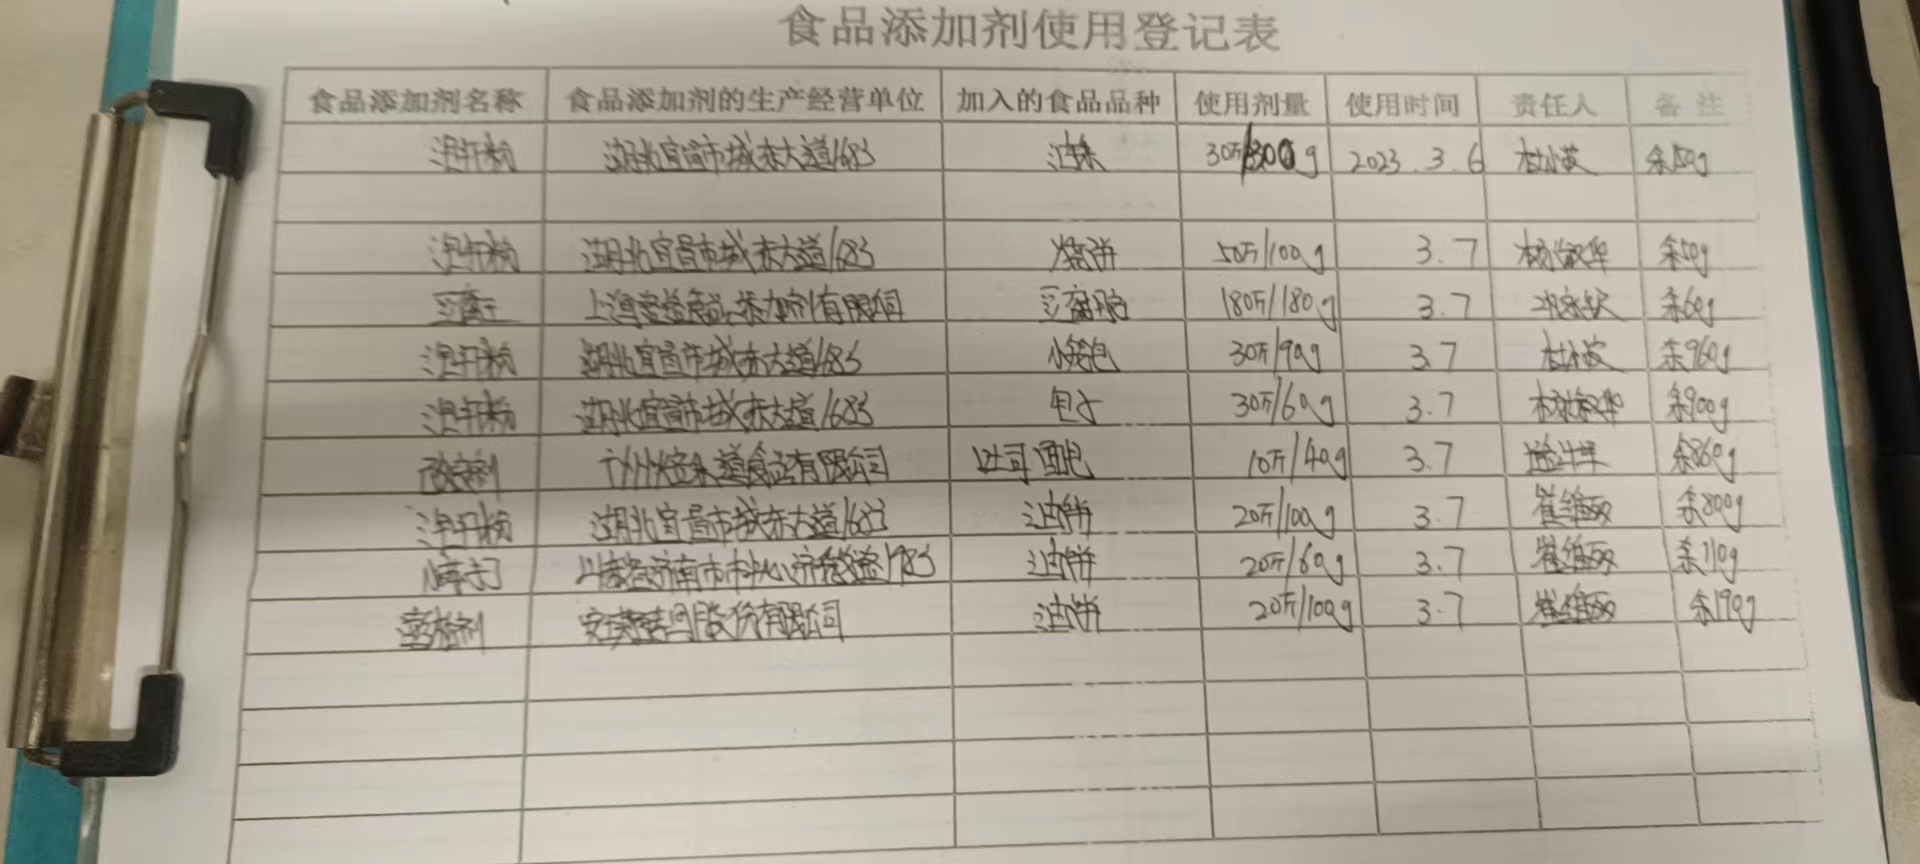 食品添加剂使用登记表
食品添加剂名称 食品添加剂的生产经营单位 加入的食品品种 使用剂量 使用时间 责任人 备注
泡打粉 湖北宜昌市城东大道1683 油条 30斤/300g 2023.3.6 杜小英 余150g
泡打粉 湖北宜昌市城东大道1683 烧饼 50斤/100g 3.7 余50g
豆腐王 上海 食品添加剂有限公司 豆腐脑 180斤/180g 3.7 余60g
泡打粉 湖北宜昌市城东大道1683 小笼包 30斤/90g 3.7 杜小英 余960g
泡打粉 湖北宜昌市城东大道1683 包子 30斤/60g 3.7 余900g
改良剂 广州 食品有限公司 吐司面包 10斤/40g 3.7 余860g
泡打粉 湖北宜昌市城东大道1683 油饼 20斤/100g 3.7 余800g
济南市市中区 油饼 20斤/60g 3.7 余110g
股份有限公司 油饼 20斤/100g 3.7 余190g